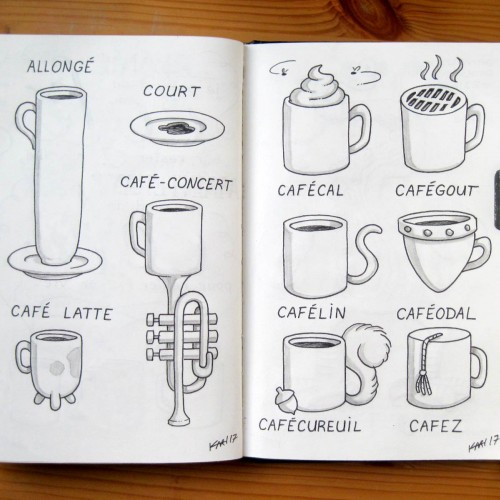 ALLONGÉ
COURT
CAFÉ-CONCERT
CAFÉ LATTE
CAFÉCAL
CAFÉGOUT
CAFÉLIN
CAFÉODAL
CAFÉCUREUIL
CAFEZ